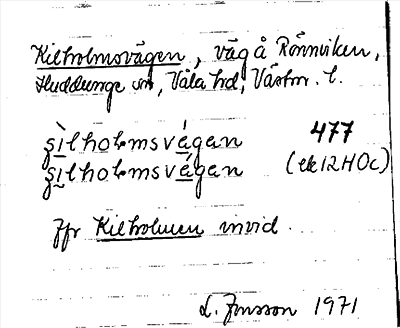 Kilholmsvägen, väg å Rönnviken,
Huddunge sn, Våla hd, Västm. l.
şìlholmsvä́gan 477
şilholmsvägan (ek 12 H 0c)
Jfr Kilholmen invid.
L. Jonsson 1971